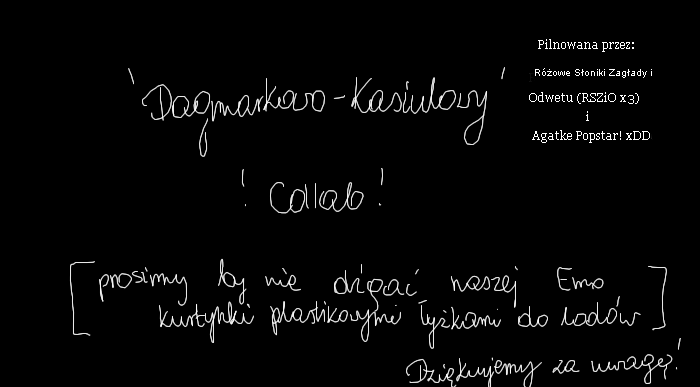 'Dagmarkowo-Kasiulowy'
! Collab!
[prosimy by nie dźgać naszej Emo
kurtynki plastikowymi łyżkami do lodów]
Dziękujemy za uwagę!
Pilnowana przez:
Różowe Słoniki Zagłady i
Odwetu (RSZiO x3)
i
Agatke Popstar! xDD